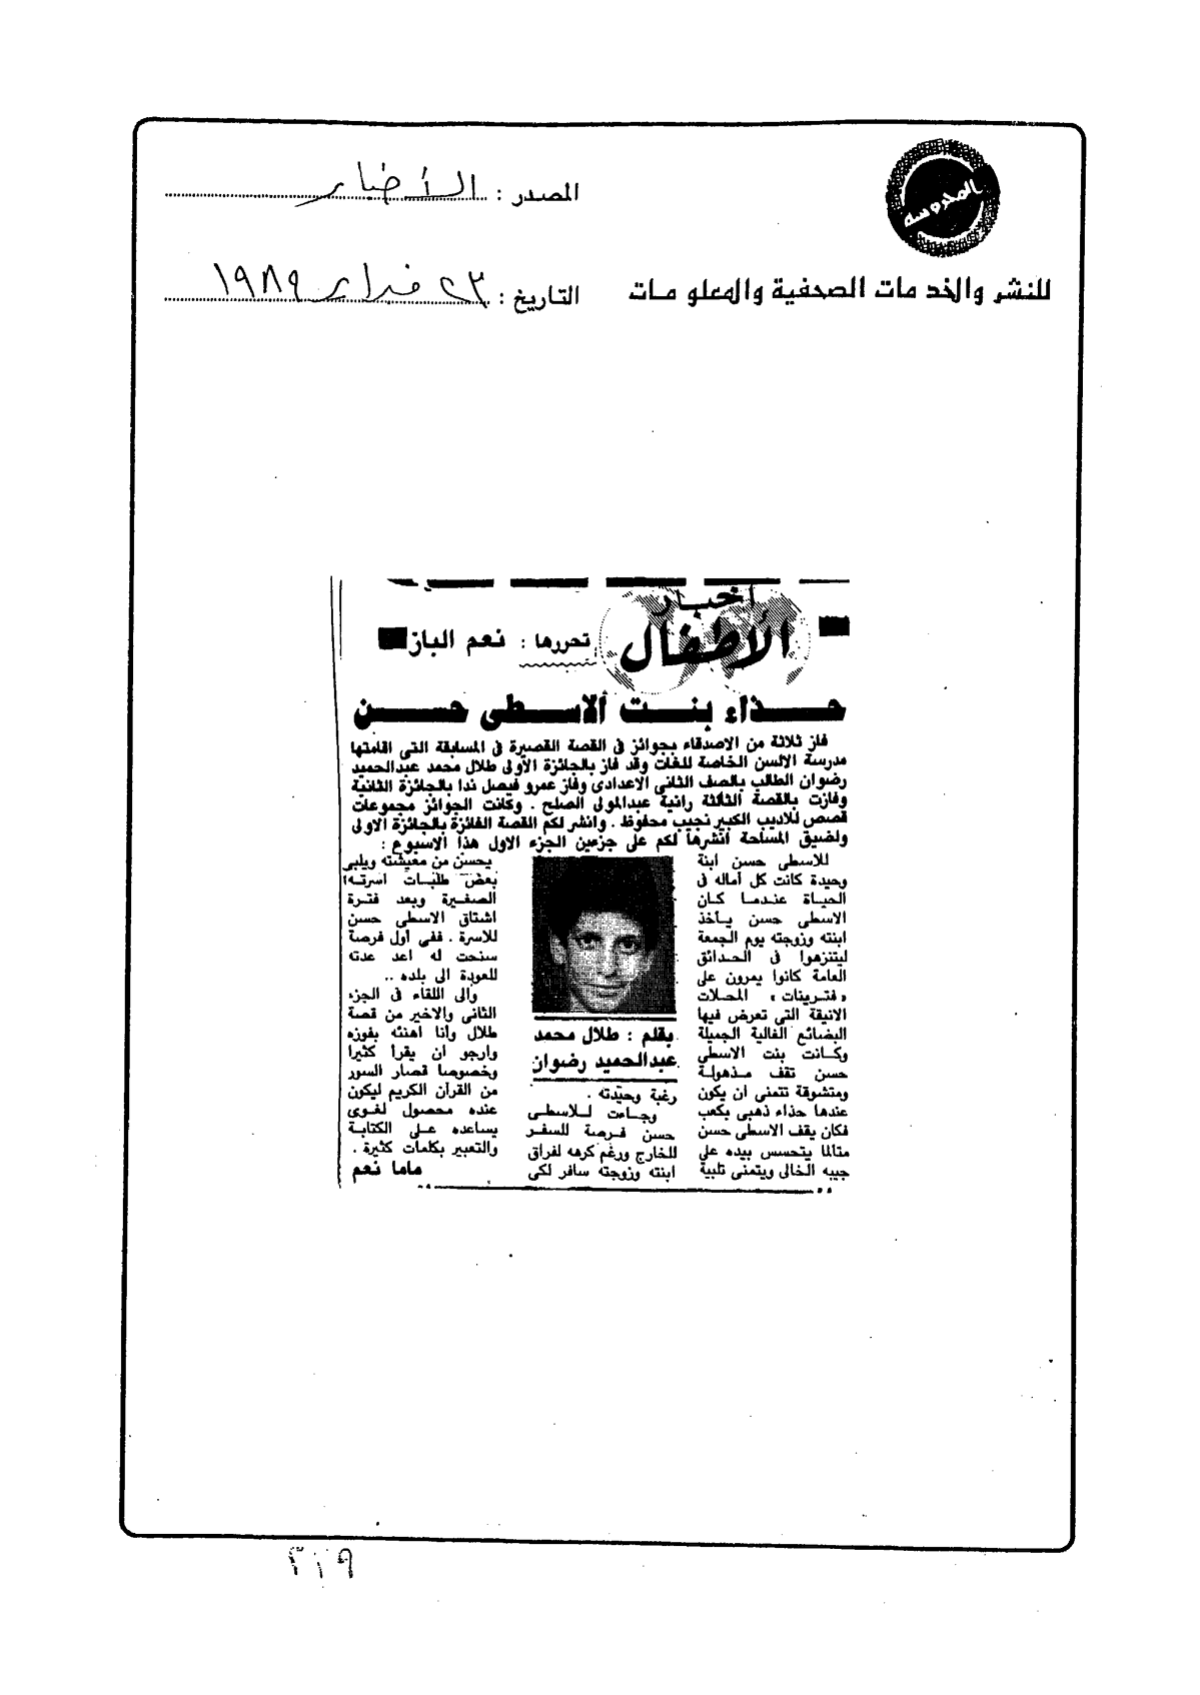 المحروسة
للنشر والخدمات الصحفية والمعلومات
المصدر : الأخبار
التاريخ : ٢٣ فبراير ١٩٨٩
أخبار
الأطفال
تحررها : نعم الباز
حذاء بنت الاسطى حسن
فاز ثلاثة من الاصدقاء بجوائز في القصة القصيرة في المسابقة التى اقامتها
مدرسة الالسن الخاصة للغات وقد فاز بالجائزة الأولى طلال محمد عبدالحميد
رضوان الطالب بالصف الثانى الاعدادى وفاز عمرو فيصل ندا بالجائزة الثانية
وفازت بالقصة الثالثة رانية عبدالمولى الصلح . وكانت الجوائز مجموعات
قصص للاديب الكبير نجيب محفوظ . وانشر لكم القصة الفائزة بالجائزة الاولى
ولضيق المساحة انشرها لكم على جزءين الجزء الاول هذا الاسبوع :
للاسطى حسن ابنة
وحيدة كانت كل أماله فى
الحياة عندما كان
الاسطى حسن يأخذ
ابنته وزوجته يوم الجمعة
ليتنزهوا فى الحدائق
العامة كانوا يمرون على
«فترينات» المحلات
الانيقة التى تعرض فيها
البضائع الغالية الجميلة
وكانت بنت الاسطى
حسن تقف مذهولة
ومتشوقة تتمنى ان يكون
عندها حذاء ذهبى بكعب
فكان يقف الاسطى حسن
متالما يتحسس بيده على
جيبه الخالى ويتمنى تلبية
بقلم : طلال محمد
عبدالحميد رضوان
رغبة وحيدته .
وجاءت للاسطى
حسن فرصة للسفر
للخارج ورغم كرهه لفراق
ابنته وزوجته سافر لكى
يحسن من معيشته ويلبى
بعض طلبات اسرته
الصغيرة وبعد فترة
اشتاق الاسطى حسن
للاسرة . ففى أول فرصة
سنحت له اعد عدته
للعودة الى بلده ..
والى اللقاء فى الجزء
الثانى والاخير من قصة
طلال وأنا اهنئه بفوزه
وارجو ان يقرأ كثيرا
وخصوصا قصار السور
من القرآن الكريم ليكون
عنده محصول لغوى
يساعده على الكتابة
والتعبير بكلمات كثيرة .
ماما نعم
٣١٩